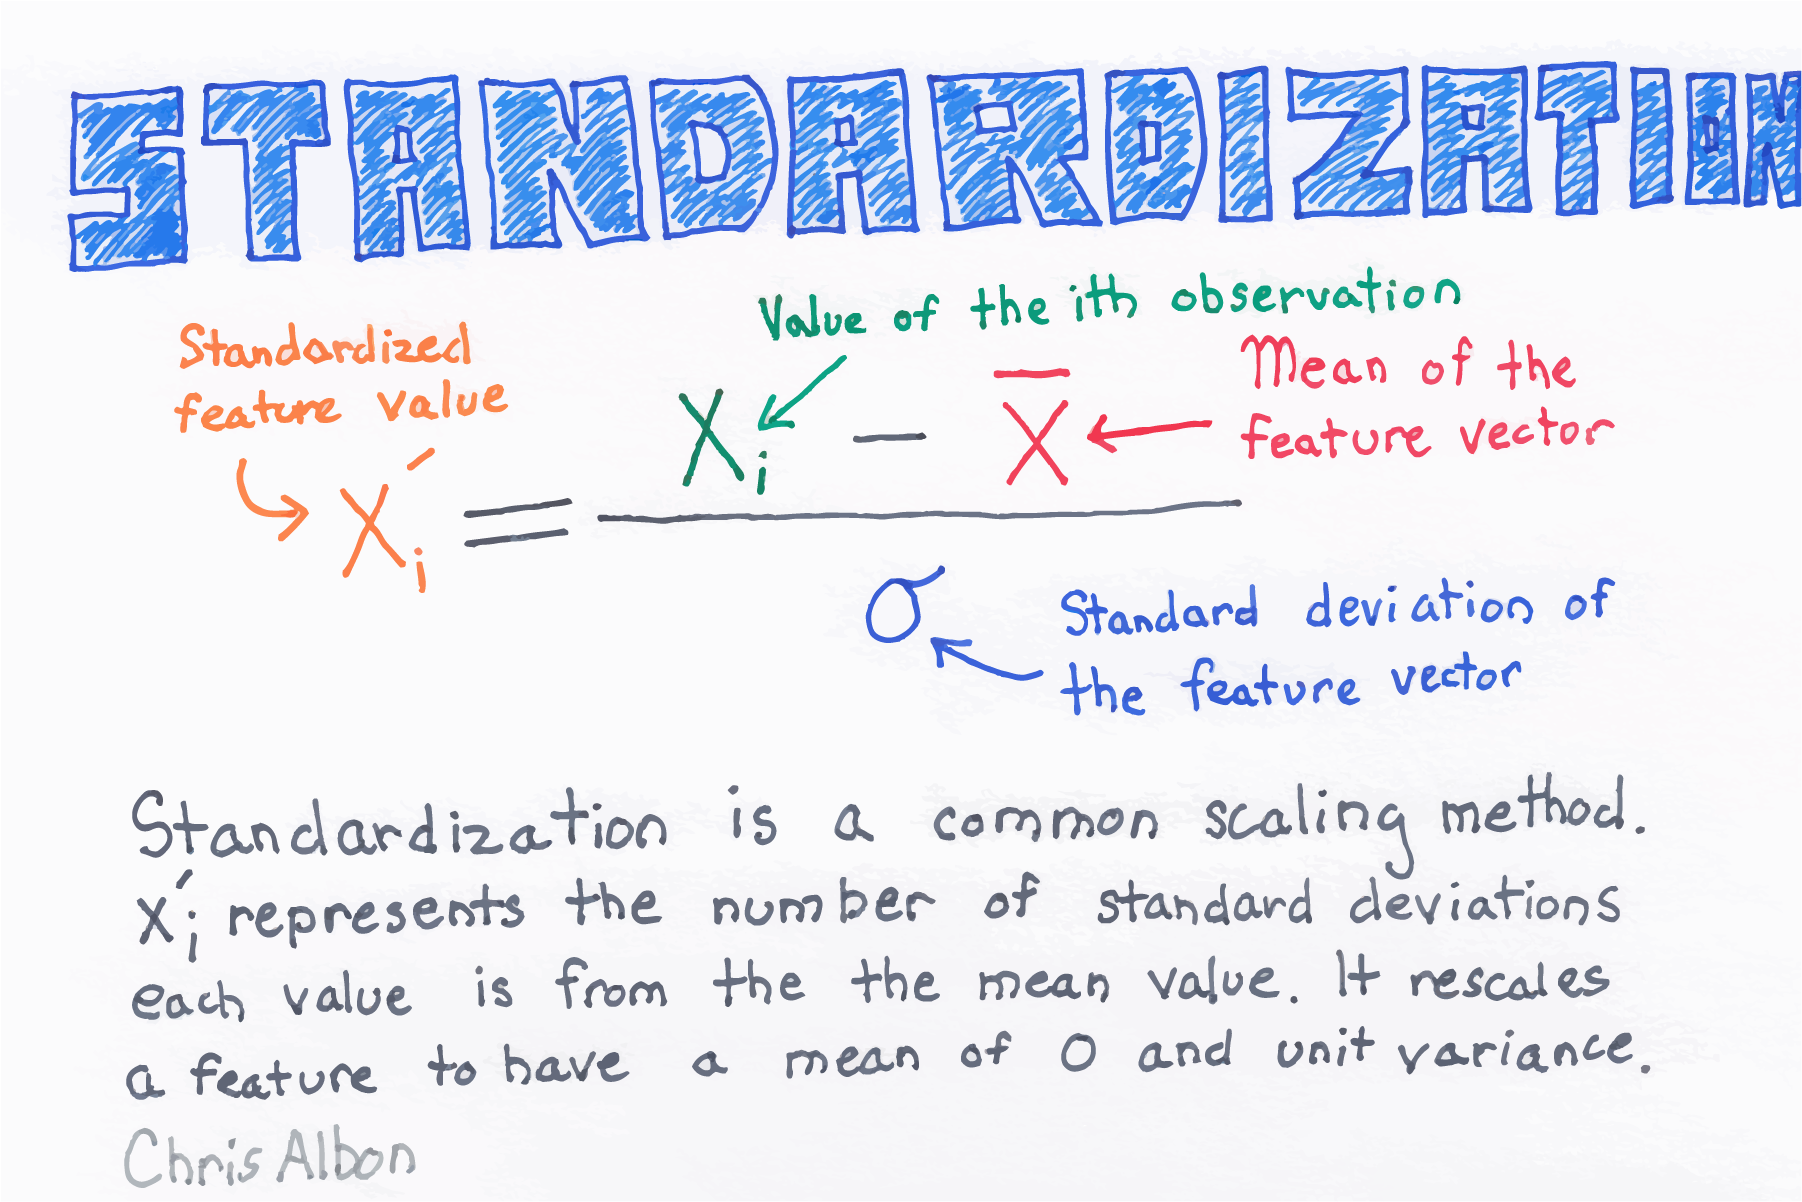 STANDARDIZATION
Value of the ith observation
Standardized
feature value
Mean of the
feature vector
X′i = (Xi − X̄) / σ
Standard deviation of
the feature vector
Standardization is a common scaling method.
x′i represents the number of standard deviations
each value is from the the mean value. It rescales
a feature to have a mean of 0 and unit variance.
Chris Albon